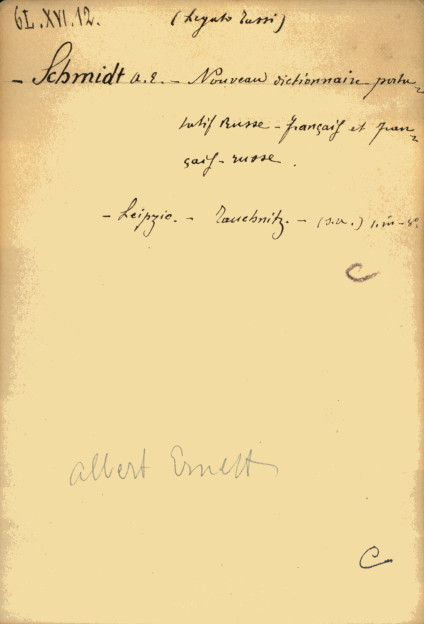 6L.XVI.12. (Legato Tassi)
- Schmidt A.E. - Nouveau dictionnaire porta-
tatif Russe - français et fran-
çais - russe.
- Leipzig. - Tauchnitz. - (s.a.) 1. in-8°
C
Albert Ernest
C